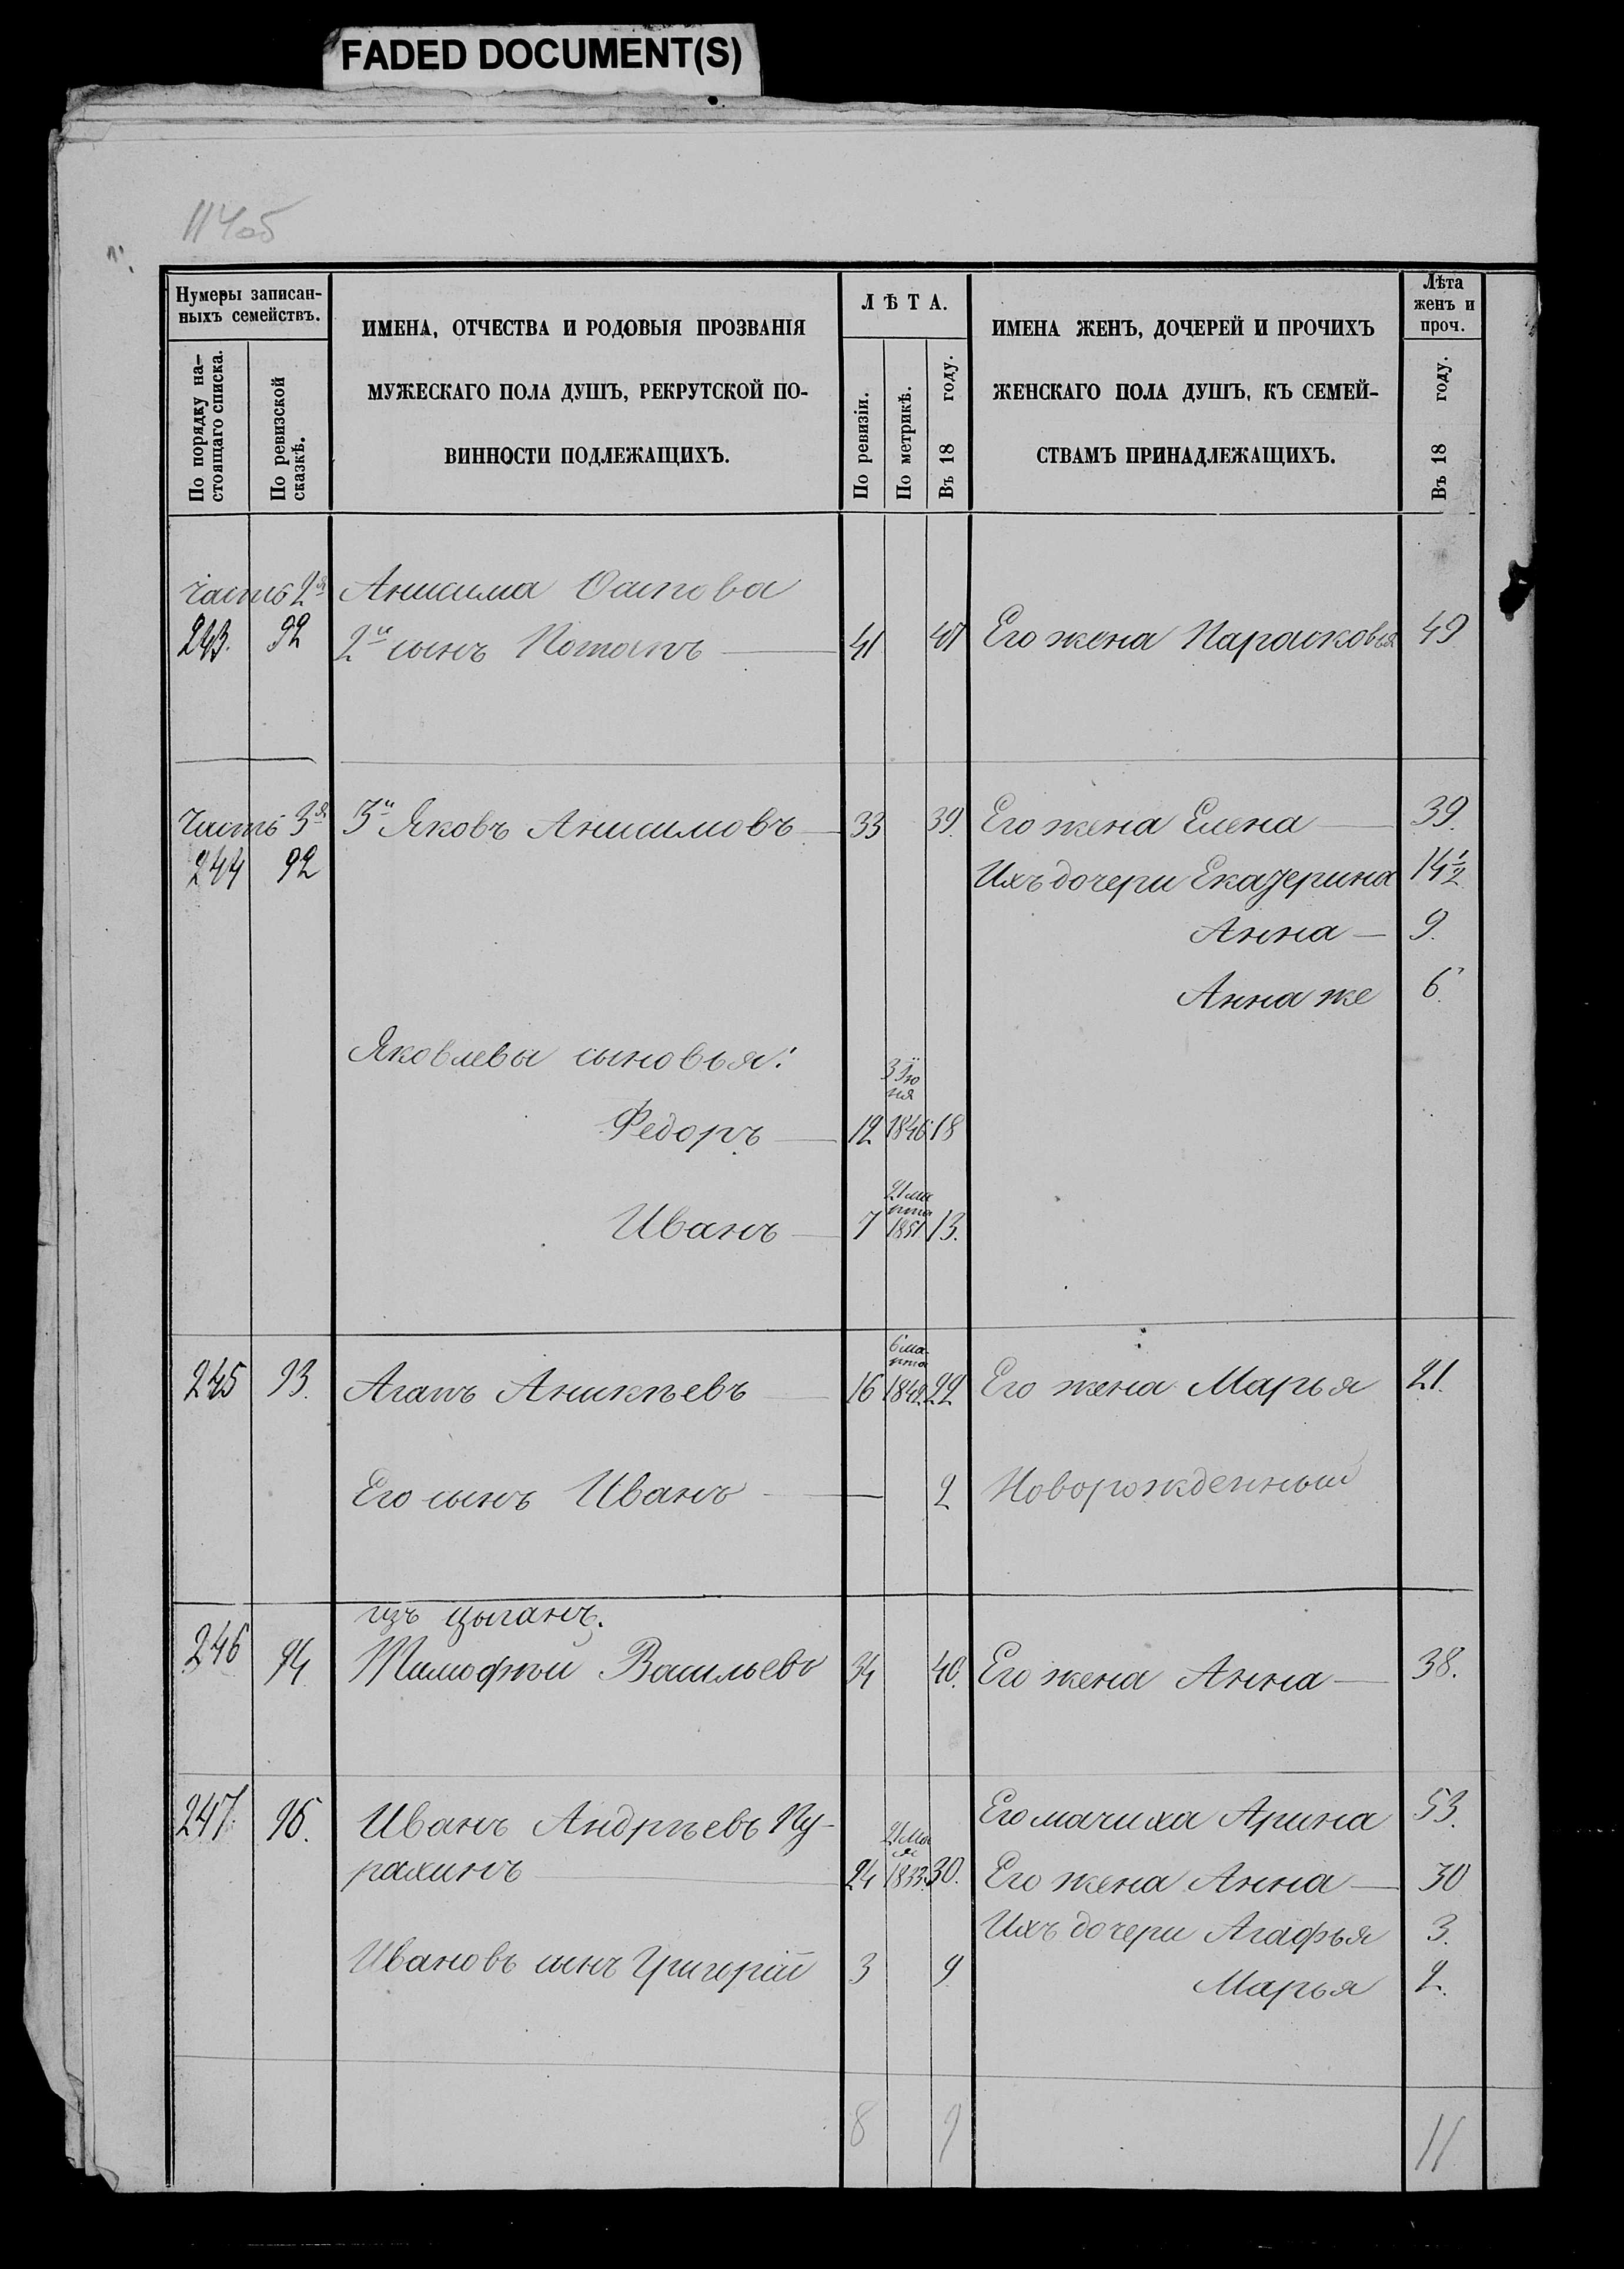 FADED DOCUMENT(S)
114об
Нумеры записан-
ныхъ семействъ.
По порядку на-
стоящаго списка.
По ревизской
сказкѣ.
ИМЕНА, ОТЧЕСТВА И РОДОВЫЯ ПРОЗВАНІЯ
МУЖЕСКАГО ПОЛА ДУШЪ, РЕКРУТСКОЙ ПО-
ВИННОСТИ ПОДЛЕЖАЩИХЪ.
ЛѢТА.
По ревизіи.
По метрикѣ.
Въ 18 году.
ИМЕНА ЖЕНЪ, ДОЧЕРЕЙ И ПРОЧИХЪ
ЖЕНСКАГО ПОЛА ДУШЪ, КЪ СЕМЕЙ-
СТВАМЪ ПРИНАДЛЕЖАЩИХЪ.
Лѣта
женъ и
проч.
Въ 18 году.
Часть 2я Анисима Осипова
243. 92 2й сынъ Потапъ 41 47 Его жена Парасковья 49
Часть 3я 3й Яковъ Анисимовъ 33 39. Его жена Елена 39.
244 92 Ихъ дочери Екатерина 14½
Анна 9.
Анна же 6.
Яковлевы сыновья:
3 Iю
ня
Федоръ 12 1846 18
21 ма
рта
Иванъ 7 1851 13.
6 ма-
рта
245 93. Агапъ Аникѣевъ 16 1842 22 Его жена Марья 21.
Его сынъ Иванъ 2 Новорожденный
изъ цыганъ.
246 94 Тимофѣй Васильевъ 34 40. Его жена Анна 38.
247. 95. Иванъ Андрѣевъ Ку- Его мачиха Арина 53.
21 Ма
я
рахинъ 24 1833. 30. Его жена Анна 30
Ихъ дочери Агафья 3.
Ивановъ сынъ Григорій 3 9 Марья 2.
8 9 11